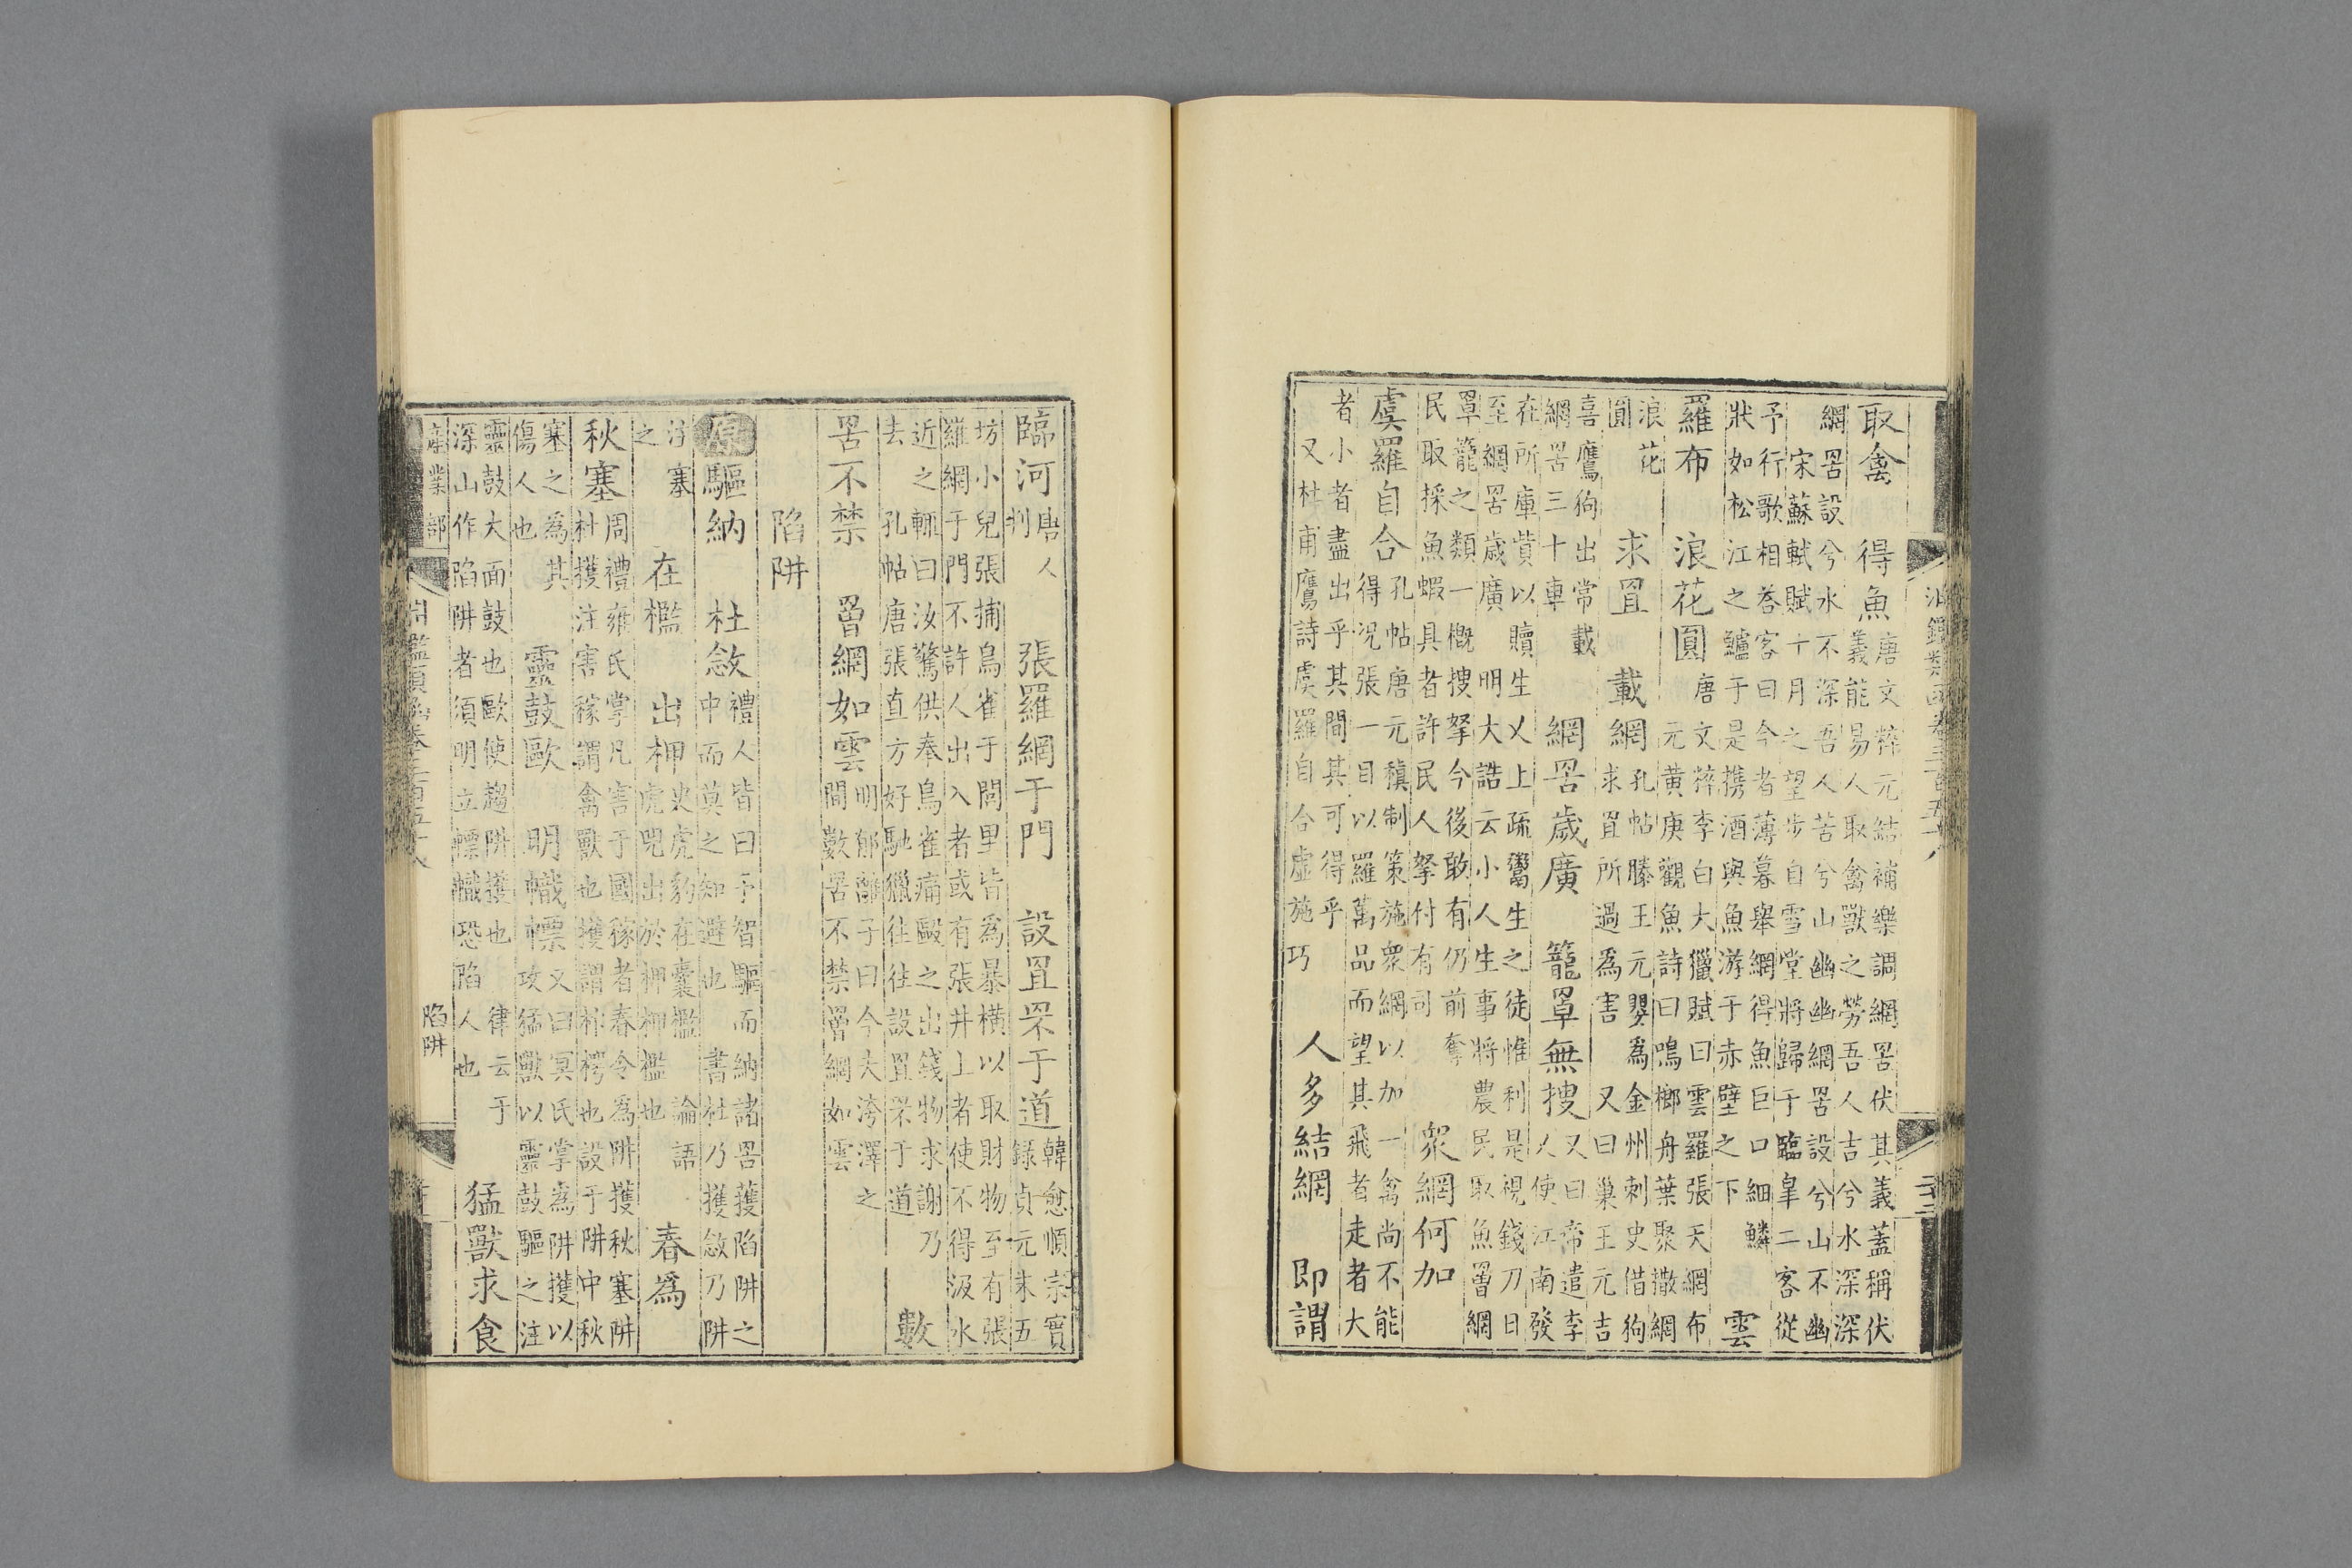 淵鑑類函卷三百五十八
取禽　得魚
唐文粹元結補樂調網罟伏其義蓋稱伏
義能易人取禽獸之勞吾人吉兮水深深
網罟設兮水不深吾人苦兮山幽幽網罟設兮山不幽
宋蘇軾賦十月之望步自雪堂將歸于臨皐二客從
予行歌相答客曰今者薄暮舉網得魚巨口細鱗
狀如松江之鱸于是携酒與魚游于赤壁之下
雲
羅布　浪花圓
唐文粹李白大獵賦曰雲羅張天網布
元黄庚觀魚詩曰鳴榔舟葉聚撒網
浪花
圓
求罝　載網
孔帖滕王元嬰爲金州刺史借狗
求罝所過爲害　又曰巢王元吉
喜鷹狗出常載
網罟三十車
網罟歲廣　籠罩無捜
又曰帝遣李
人使江南發
在所庫貲以贖生乂上疏鬻生之徒惟利是視錢刀日
至網罟歲廣　明大誥云小人生事將農民取魚罾網
罩籠之類一概捜拏今後敢有仍前奪
民取採魚蝦具者許民人拏付有司
衆網何加
虞羅自合
孔帖唐元稹制策施衆網以加一禽尚不能
得况張一目以羅萬品而望其飛者走者大
者小者盡出乎其間其可得乎
又杜甫鷹詩虞羅自合虛施巧
人多結網　即謂
臨河
唐人
判
張羅網于門　設罝罘于道
韓愈順宗實
錄貞元末五
坊小兒張捕鳥雀于閭里皆爲暴橫以取財物至有張
羅網于門不許人出入者或有張井上者使不得汲水
近之輒曰汝驚供奉鳥雀痛毆之出錢物求謝乃
去　孔帖唐張直方好馳獵往往設罝罘于道
數
罟不禁　罾網如雲
明郁離子曰今夫洿澤之
間數罟不禁罾網如雲
陷阱
原驅納　杜斂
禮人皆曰予智驅而納諸罟擭陷阱之
中而莫之知避也　書杜乃擭斂乃阱
注塞
之
在檻　出柙
史虎豹在囊檻　論語
虎兕出於柙柙檻也
春爲
秋塞
周禮雍氏掌凡害于國稼者春令爲阱擭秋塞阱
杜擭注害稼謂禽獸也擭謂柞楞也設于阱中秋
塞之爲其
傷人也
靈鼓歐　明幟標
又曰冥氏掌爲阱擭以
攻猛獸以靈鼓驅之注
靈鼓大面鼓也歐使趨阱擭也　律云于
深山作陷阱者須明立標幟恐陷人也
猛獸求食
産業部
淵鑑類函卷三百五十八
陷阱